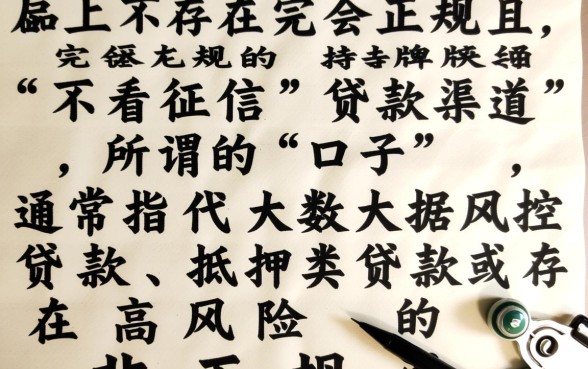 上不存在完会正规且,
规的 持 牌
“不看征信”贷款渠道”
,所谓的“口子” ,
通常指代大数大据风控
贷款、抵押类贷款或存
在高风险 的